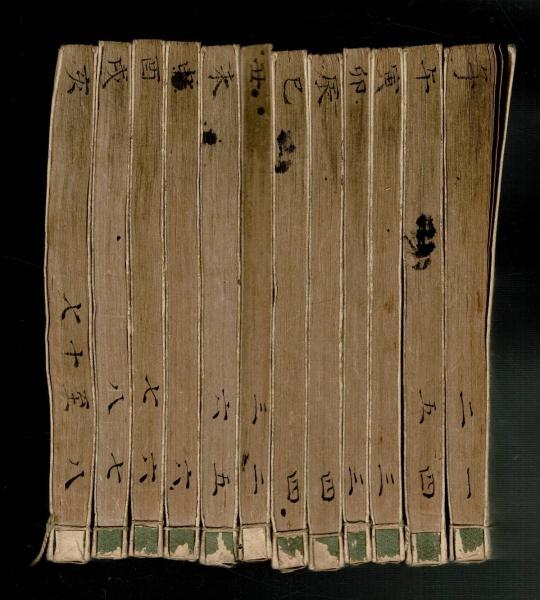 子二一
午五四
寅三
卯三
辰四
巳四
丑三二
未六五
申六
酉七六
戌八七
亥七十至八